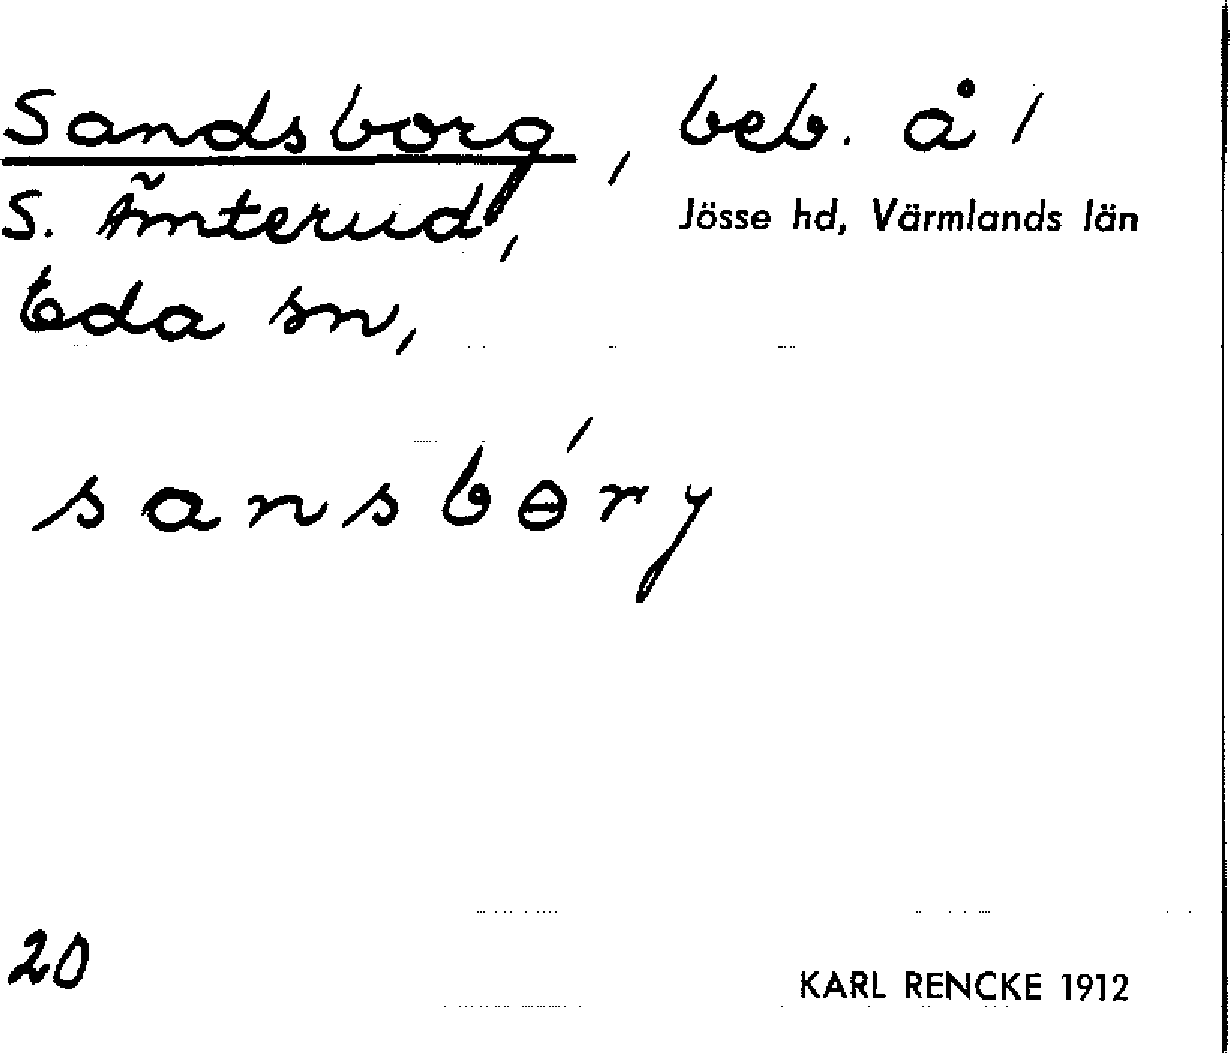 Sandsborg, beb. å /
S. Ämterud,
Jösse hd, Värmlands län
Eda sn,
sansbɵ́ry
20
KARL RENCKE 1912